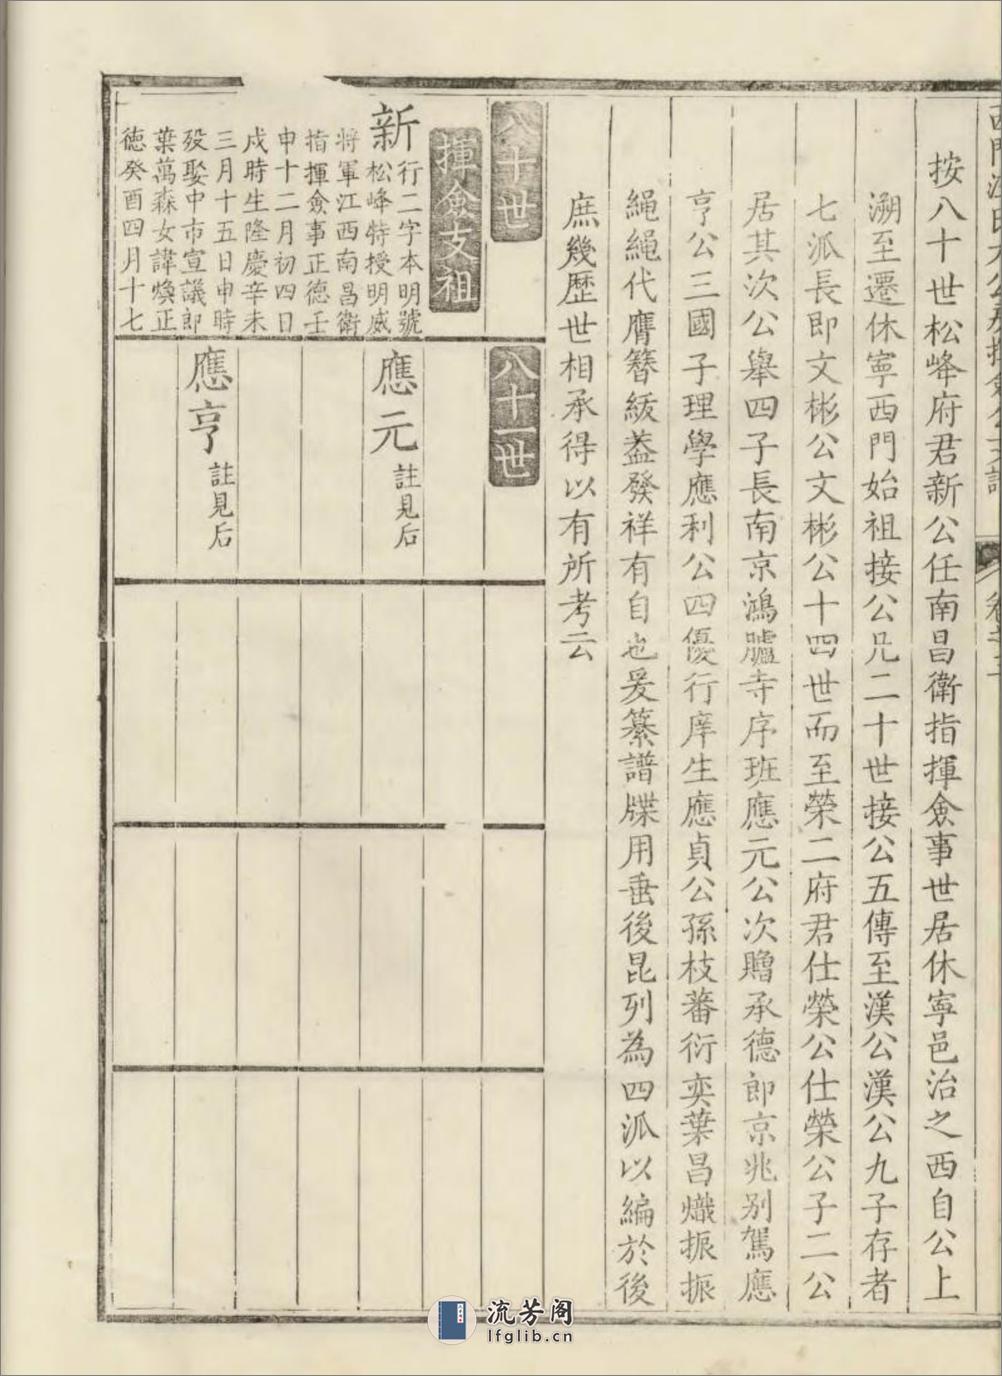 按八十世松峰府君新公任南昌衛指揮僉事世居休寧邑治之西自公上
溯至遷休寧西門始祖接公凡二十世接公五傳至漢公漢公九子存者
七派長即文彬公文彬公十四世而至榮二府君仕榮公仕榮公子二公
居其次公舉四子長南京鴻臚寺序班應元公次贈承德郎京兆別駕應
亨公三國子理學應利公四優行庠生應貞公孫枝蕃衍奕葉昌熾振振
繩繩代膺簪紱葢發祥有自也爰纂譜牒用垂後昆列為四派以編於後
庶幾歷世相承得以有所考云
八十世
揮僉支祖
新
行二字本明號
松峰特授明威
將軍江西南昌衛
指揮僉事正德壬
申十二月初四日
戌時生隆慶辛未
三月十五日申時
歿娶中市宣議郎
葉萬森女諱煥正
徳癸酉四月十七
八十一世
應元 註見后
應亨 註見后
流芳阁
lfglib.cn